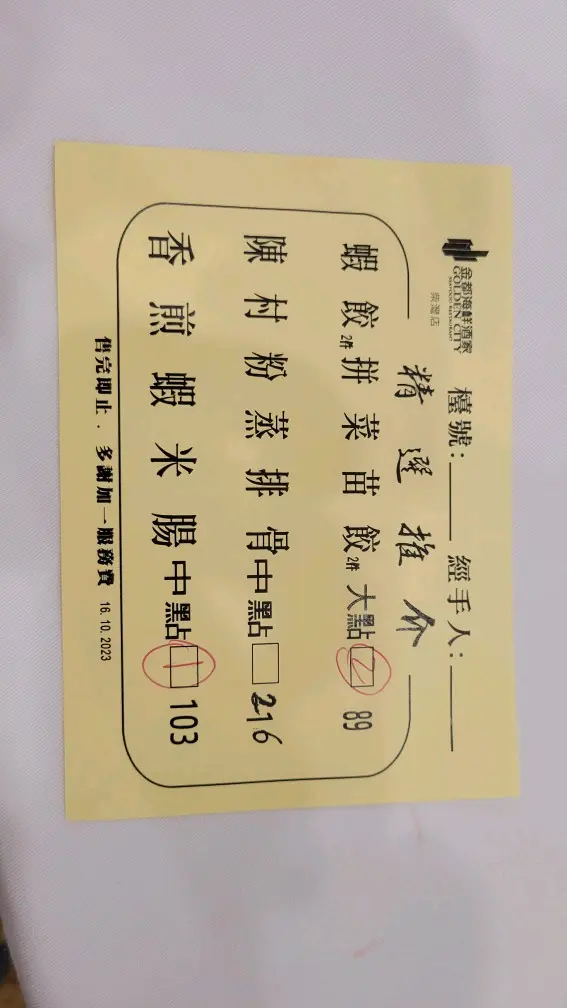 金都海鮮酒家
GOLDEN CITY
SEAFOOD RESTAURANT
柴灣店
檯號：______ 經手人：______
精選推介
蝦餃2件拼菜苗餃2件 大點 2 89
陳村粉蒸排骨 中點 □ 216
香煎蝦米腸 中點 1 103
售完即止．多謝加一服務費 16.10.2023